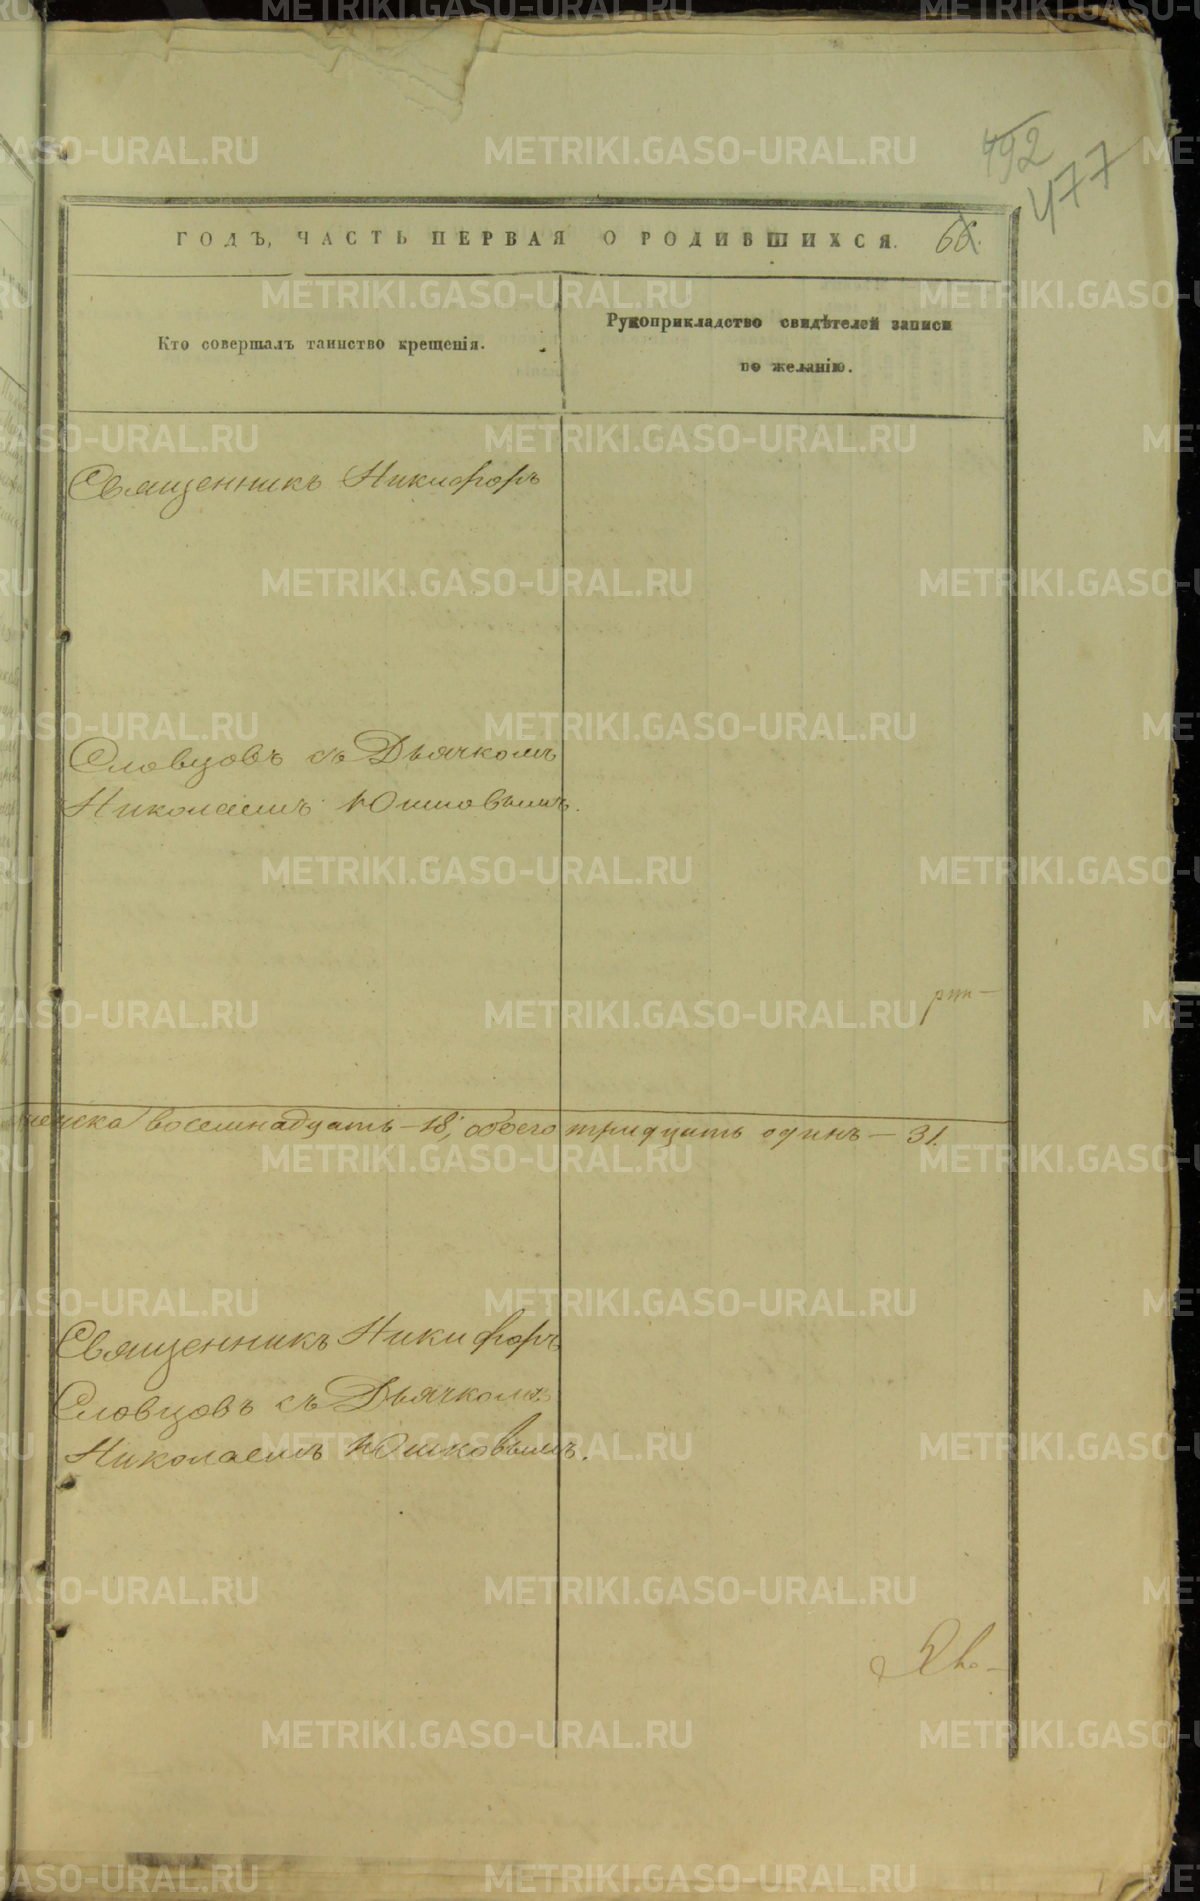 492
477
ГОДЪ, ЧАСТЬ ПЕРВАЯ О РОДИВШИХСЯ. 66.
Кто совершалъ таинство крещенія.
Рукоприкладство свидѣтелей записи
по желанію.
Священникъ Никифоръ
Словцовъ съ Дьячкомъ
Николаемъ Юшковымъ.
женска восемнадцать – 18, обоего тридцать одинъ – 31.
Священникъ Никифоръ
Словцовъ съ Дьячкомъ
Николаемъ Юшковымъ.
METRIKI.GASO-URAL.RU